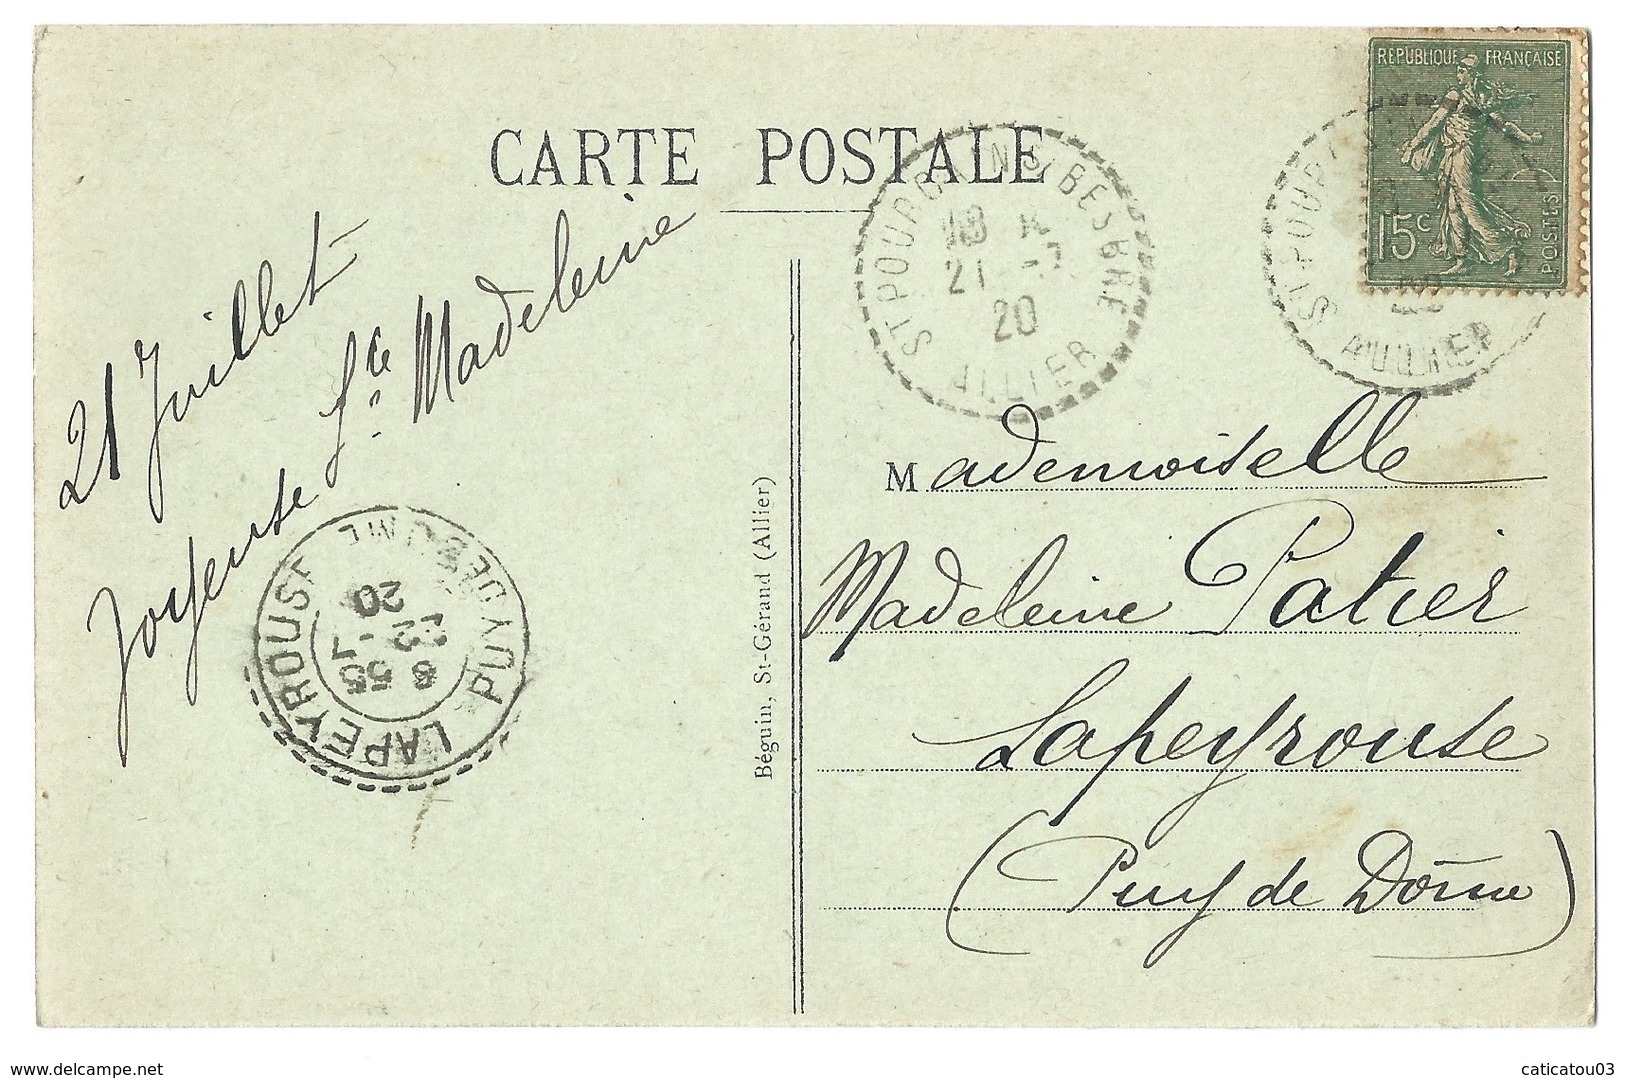 CARTE POSTALE
REPUBLIQUE FRANÇAISE
15c
POSTES
ST POURCAIN S/BESBRE
18
21 -7
20
ALLIER
ALLIER
21 Juillet
Joyeuse Ste Madeleine
LAPEYROUSE
PUY DE DOME
8 55
22 -7
20
Béguin, St-Gérand (Allier)
Mademoiselle
Madeleine Patier
Lapeyrouse
(Puy de Dôme)
www.delcampe.net
caticatou03